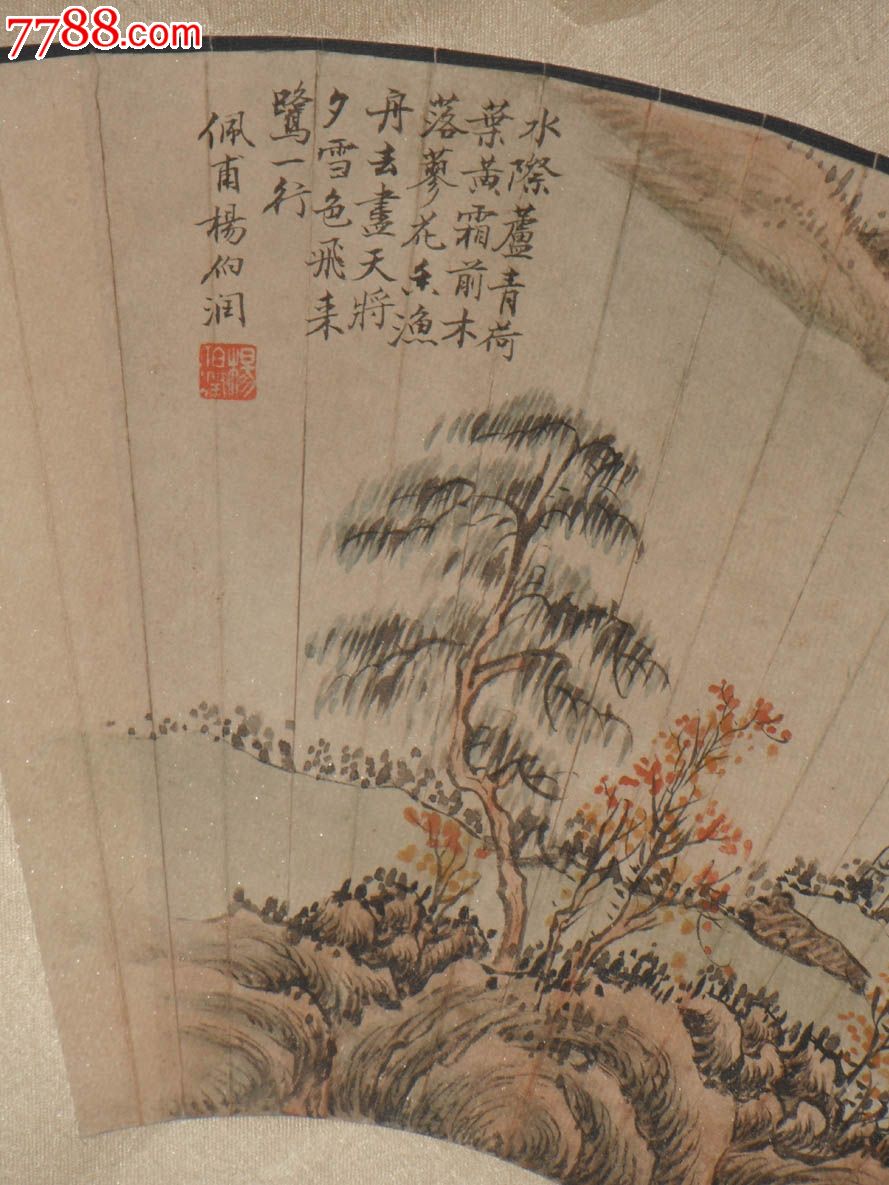 7788.com
水際蘆青荷
葉黃霜前木
落蓼花香漁
舟去盡天將
夕雪色飛来
鷺一行
佩甫楊伯润
楊伯潤